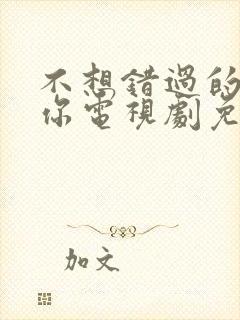 不想錯過的
你電視劇免
加文